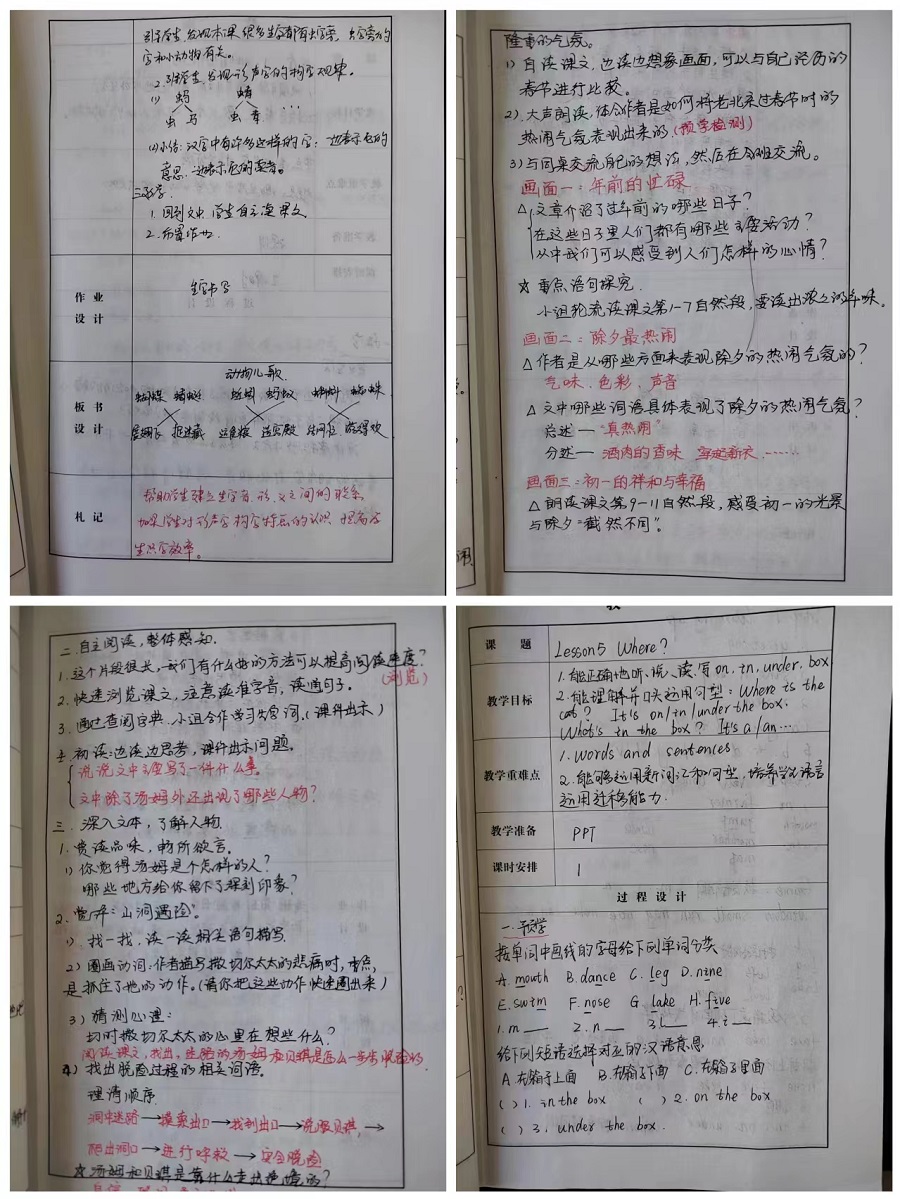 引导学生发现本课很多生字都有虫字旁，虫字旁的
字和小动物有关。
2.引导学生发现形声字的构字规律。
(1) 蚂 蜻
虫 马 虫 青 ...
(2)小结：汉字中有许多这样的字：一边表示它的
意思，一边表示它的读音。
1.回到文中，学生自主读课文
2.布置作业.
作业
设计
生字书写
板书
设计
动物儿歌
蝴蝶 蜻蜓 蚯蚓 蚂蚁 蝌蚪 蜘蛛
展翅飞 捉迷藏 运食粮 造宫殿 游得欢
札记
帮助学生建立生字音、形、义之间的联系
加深学生对形声字构字特点的认识 提高学
生识字效率。
隆重的气氛。
1) 自读课文，边读边想象画面，可以与自己经历的
春节进行比较。
2) 大声朗读，体会作者是如何将老北京过春节时的
热闹气氛表现出来的(预学检测)
3) 与同桌交流自己的想法，然后在全班交流。
画面一：年前的忙碌
△ 文章介绍了过年前的哪些日子？
在这些日子里人们都有哪些主要活动？
从中我们可以感受到人们怎样的心情？
☆ 重点语句探究.
小组轮流读课文第1-7自然段，要读出浓浓的年味。
画面二：除夕最热闹
△ 作者是从哪些方面来表现除夕的热闹气氛的？
气味、色彩、声音
△ 文中哪些词语具体表现了除夕的热闹气氛？
总述 — “真热闹”
分述 — 酒肉的香味 穿起新衣 ......
画面三：初一的祥和与幸福
△ 朗读课文第9-11自然段，感受初一的光景
与除夕“截然不同”。
二.自主阅读，整体感知.
1.这个片段很长，我们有什么好的方法可以提高阅读速度？
(浏览)
2.快速浏览课文，注意读准字音，读通句子。
3.通过查阅字典、小组合作学习生字词。(课件出示)
4.初读边读边思考，课件出示问题。
说说文中主要写了一件什么事。
文中除了汤姆外还出现了哪些人物？
三.深入文本，了解人物.
1.赏读品味，畅所欲言。
1) 你觉得汤姆是个怎样的人？
哪些地方给你留下了深刻印象？
2.赏析：“山洞遇险”。
1) 找一找，读一读相关语句描写.
2) 圈画动词：作者描写撒切尔太太的悲痛时，重点
是抓住了她的动作。(请你把这些动作快速圈出来)
3) 猜测心理：
当时撒切尔太太的心里在想些什么？
阅读课文，找出，迷路的汤姆和贝琪是怎么一步步脱险的
4) 找出脱险过程的相关词语。
理清顺序
洞中迷路→摸索出口→找到出口→说服贝琪→
爬出洞口→进行呼救→安全脱险
☆ 汤姆和贝琪是靠什么走出绝境的？
课 题
Lesson5 Where?
教学目标
1.能正确地听、说、读、写on, in, under, box
2.能理解并口头运用句型：Where is the
cat? It's on/in/under the box.
What's in the box? It's a/an...
教学重难点
1.words and sentences
2.能够运用新词汇和句型，培养学生语言
运用迁移能力.
教学准备
PPT
课时安排
1
过 程 设 计
一.预学
按单词中画线的字母给下列单词分类
A. mouth B. dance C. leg D. nine
E. swim F. nose G. lake H. five
1. m ___ 2. n ___ 3. l ___ 4. i ___
给下列短语选择对应的汉语意思
A.在箱子上面 B.在箱子下面 C.在箱子里面
( ) 1. in the box ( ) 2. on the box
( ) 3. under the box.